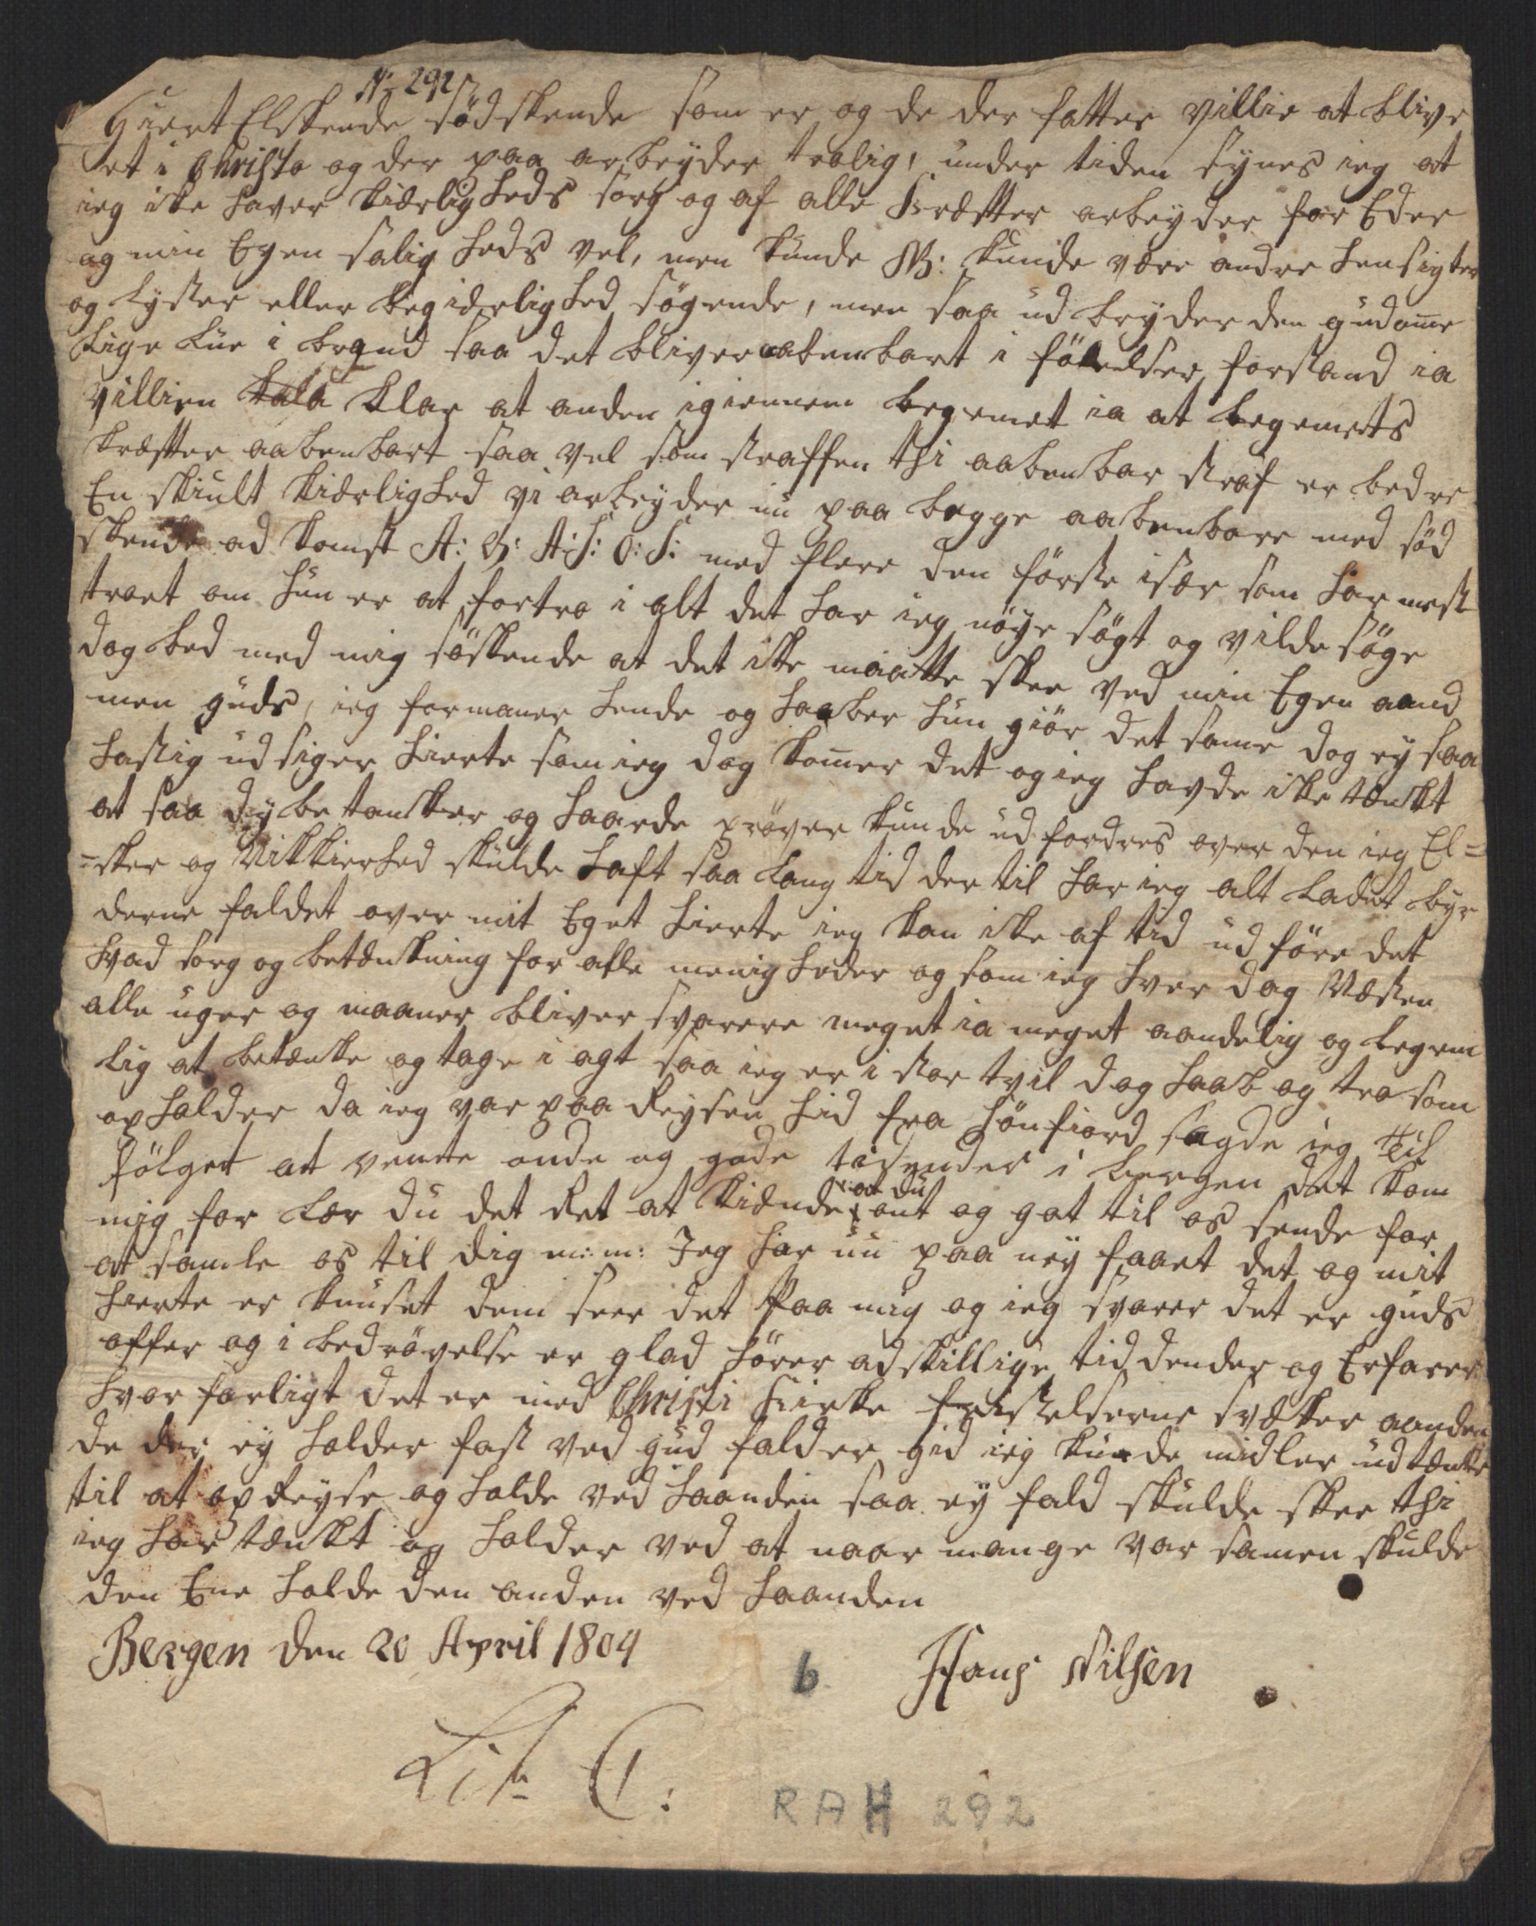 N: 292
Hiert Elskende södskende som er og de der fatter villie at blive
et i Christo og der paa arbeyder trolig, under tiden synes ieg at
ieg ikke haver kierlig heds sorg og af alle kræfter arbeyder for Eder
og min Egen salig heds vel, men kunde kunde være andre hensigter
og lyster eller begiærlighed søgende, men saa ud bryder den gudome
lige lue i brand saa det bliver aabenbart i fölelser, forstand ia
villien klar at anden igiennem legemet ia at legemets
kræfter aabenbart saa vel som straffen thi aabenbar straf er bedre
En skiult kiærlighed vi arbeyder nu paa begge aabenbare med söd
skende ad komst med flere den förste især som har mest
troet om hun er at fortro i alt det har ieg nöye sögt og vilde söge
dog bed med mig söskende at det ikke maatte skee ved min Egen aand
men guds, ieg formaner hende og haaber hun giör det same dog ey saa
hastig ud siger hierte som ieg dog komer det og ieg havde ikke tænkt
at saa dybe tancker og haarde pröver kunde ud fordres over den ieg El=
=sker og Sikkerhed skulde haft saa lang tid der til har ieg alt ladet byr
derne faldet over mit Eget hierte ieg kan ikke af tid ud före det
hvad sorg og betænkning for alle menig heder og som ieg hver dag Næsten
alle uger og maaner bliver svarere meget ia meget aandelig og legem
lig at betænke og tage i agt saa ieg er i stor tvil dog haab og tro som
op holder da ieg var paa Reysen hid fra Sönfiord sagde ieg til
fölget at vente onde og gode tisender i bergen det kom
mig for lær du det Ret at kiende at du ont og got til os sende for
at samle os til dig m: m: Jeg har nu paa ney faaet det og mit
hierte er knuset dem seer det paa mig og ieg svarer det er guds
offer og i bedrövelse er glad hörer adskillige tiddender og Erfarer
hvor farligt det er med Christi kirke fristelserne svækker aanden
de der ey holder fast ved gud falder gid ieg kunde midler udtænke
til at op Reyse og holde ved haanden saa ey fald skulde skee thi
ieg har tænkt og holder ved at naar mange var samen skulde
den Ene holde den anden ved haanden
Bergen den 20 April 1804
Hans Nilsen
6
Litr C:
RAH 292